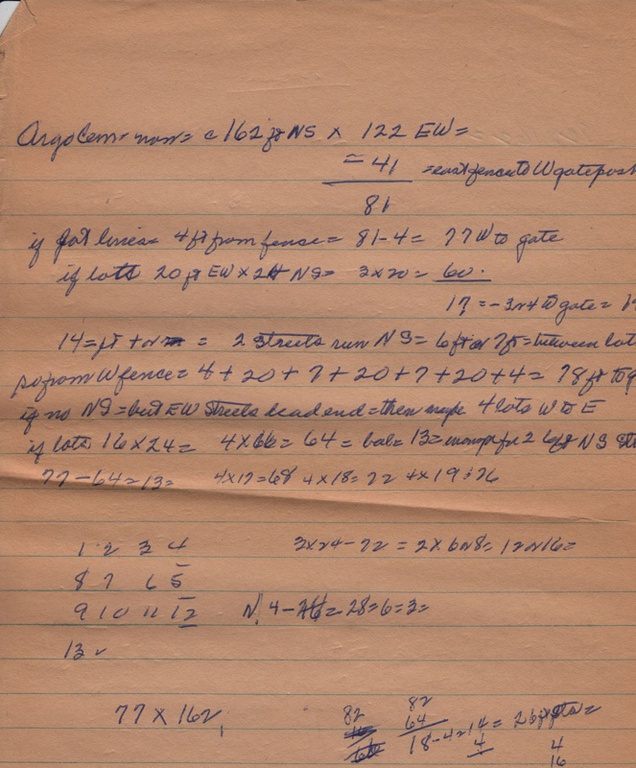 Argo Cem = now = c 162 ft NS x 122 EW =
= 41 = east fence to W gate post
81
if first lines = 4 ft from fense = 81-4 = 77 W to gate
if lotts 20 ft EW x 24 NS = 3 x 20 = 60.
17 = -3 or 4 to gate =
14 = ft = 2 Streets run NS = 6 ft or 7 ft = between lots
so from W fence = 4 + 20 + 7 + 20 + 7 + 20 + 4 = 78 ft to
if no NS = but EW Streets dead end = then maybe 4 lots W to E
if lots 16 x 24 = 4 x 16 = 64 = bal = 13 = enough for 2 6 ft NS St
77 - 64 = 13 = 4 x 17 = 68 4 x 18 = 72 4 x 19 = 76
1 2 3 4 3 x 24 - 72 = 2 x 6 or 8 = 12 or 16 =
8 7 6 5
9 10 11 12 N 4 - = 28 = 6 = 3 =
13
77 x 162
82 82
64
64 18 - 4 = 14 = 2 6 ft
4 4
16